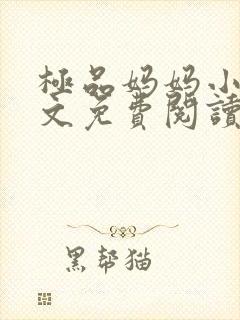 極品妈妈小
文免費閱讀
黑帮猫